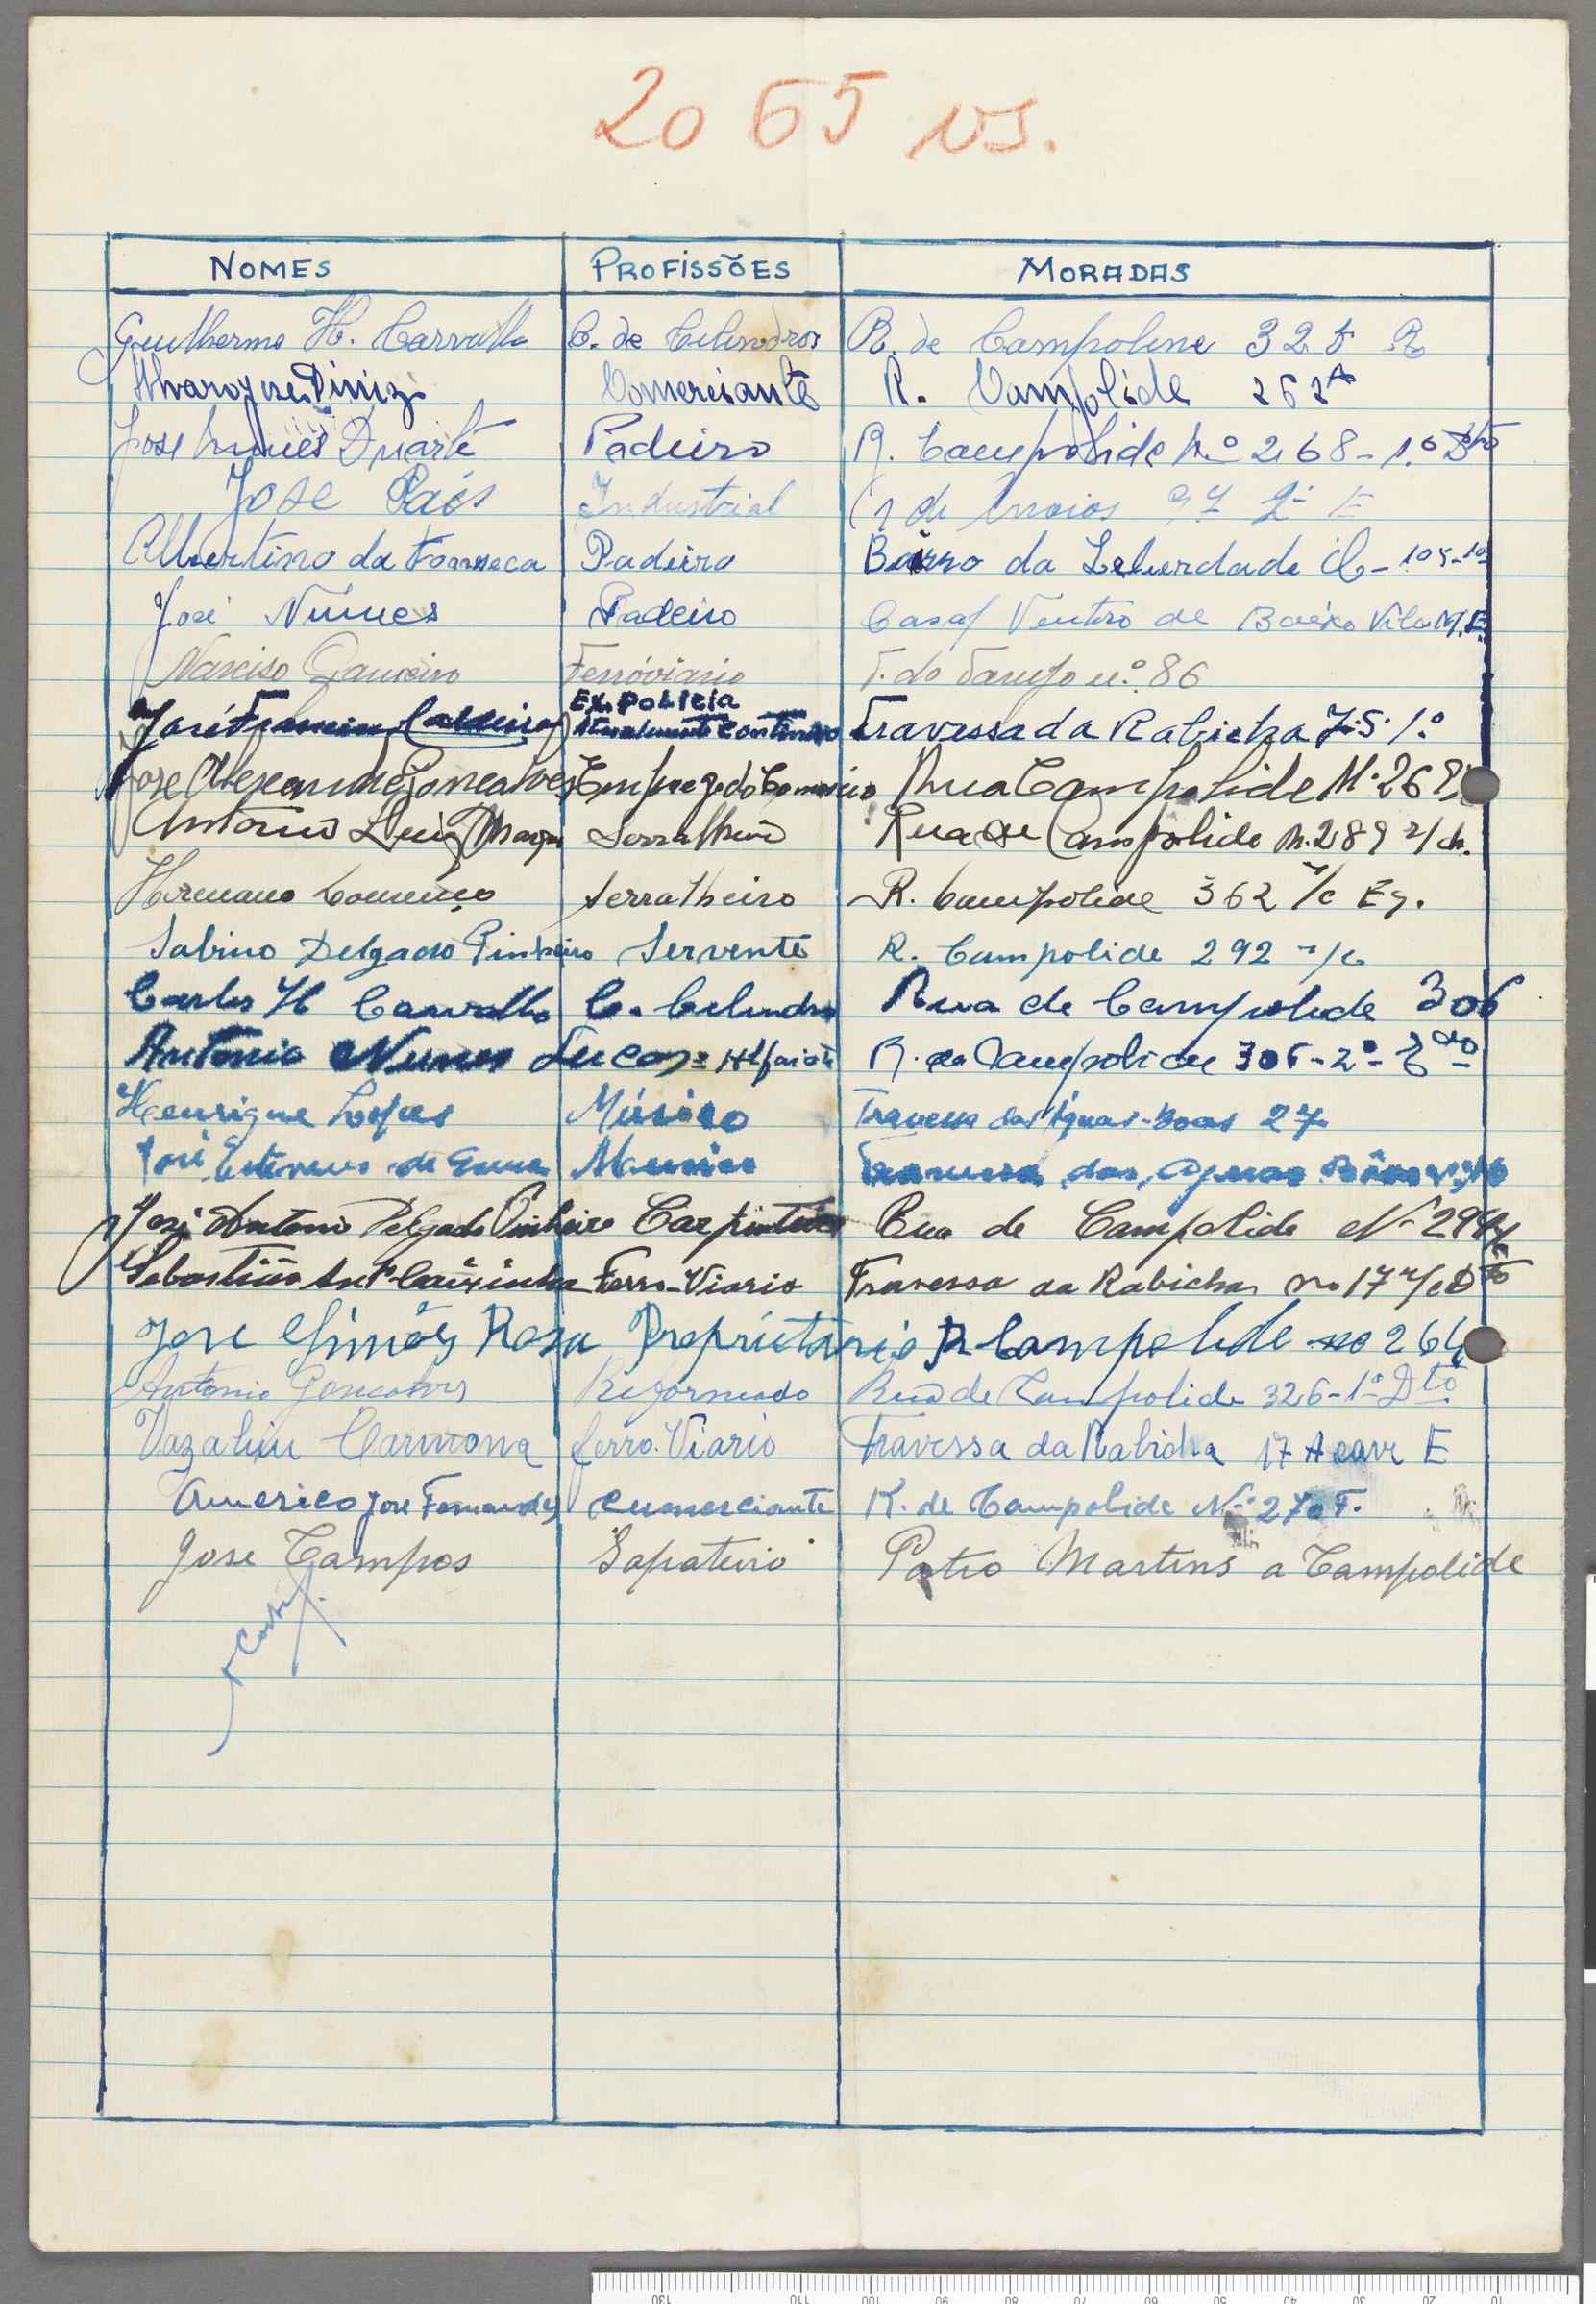 2065 vs.
NOMES PROFISSÕES MORADAS
Guilherme H. Carvalho C. de Celindros R. de Campoline 325 R
Alvaro Jose Diniz Comerciante R. Campolide 262 A
Jose Nunes Duarte Padeiro R. Campolide N.º 268-1.º Dto
Jose Pais Industrial 2º E
Albertino da Fonseca Padeiro Bairro da Leberdade C-105-1º
José Nunes Padeiro Casal Ventro de Baixo Vila M.E.
Narciso Ferróviario T. do Tarujo n.º 86
Ex. Policia
José Francisco Caldeira Atualmente Contenuo Travessa da Rabicha J.S. 1.º
Jose Alexandre Goncalves Empregado Comercio Rua Campolide N. 268
Antonio Luiz Serralheiro Rua de Campolide N. 289 r/ch.
Hermano Lourenço Serralheiro R. Campolide 362 r/c Eq.
Sabino Delgado Pinheiro Servente R. Campolide 292 r/c
Carlos H Carvalho C. Celindro Rua de Campolide 306
Antonio Nunes Lucas = Alfaiate R. de Campolide 306-2º-
Henrique Lopes Músico Travessa das Águas-Boas 27
José Esteves de Musico Travessa das Aguas Bôas
José Antonio Delgado Pinheiro Carpinteiro Rua de Campolide Nº 294
Sebastião Antº Caixinha Ferro-Viario Travessa da Rabicha no 17 r/c Dto
Jose Simões Rosa Proprietario R Campolide no 264
Antonio Goncalves Reformado Rua de Campolide 326-1º Dto
Vazaliu Carmona ferro. Viario Travessa da Rabicha 17 A cave E
Americo Jose Fernandes Cumerciante R. de Campolide Nº 270 F.
Jose Campos Sapateiro Patio Martins a Campolide